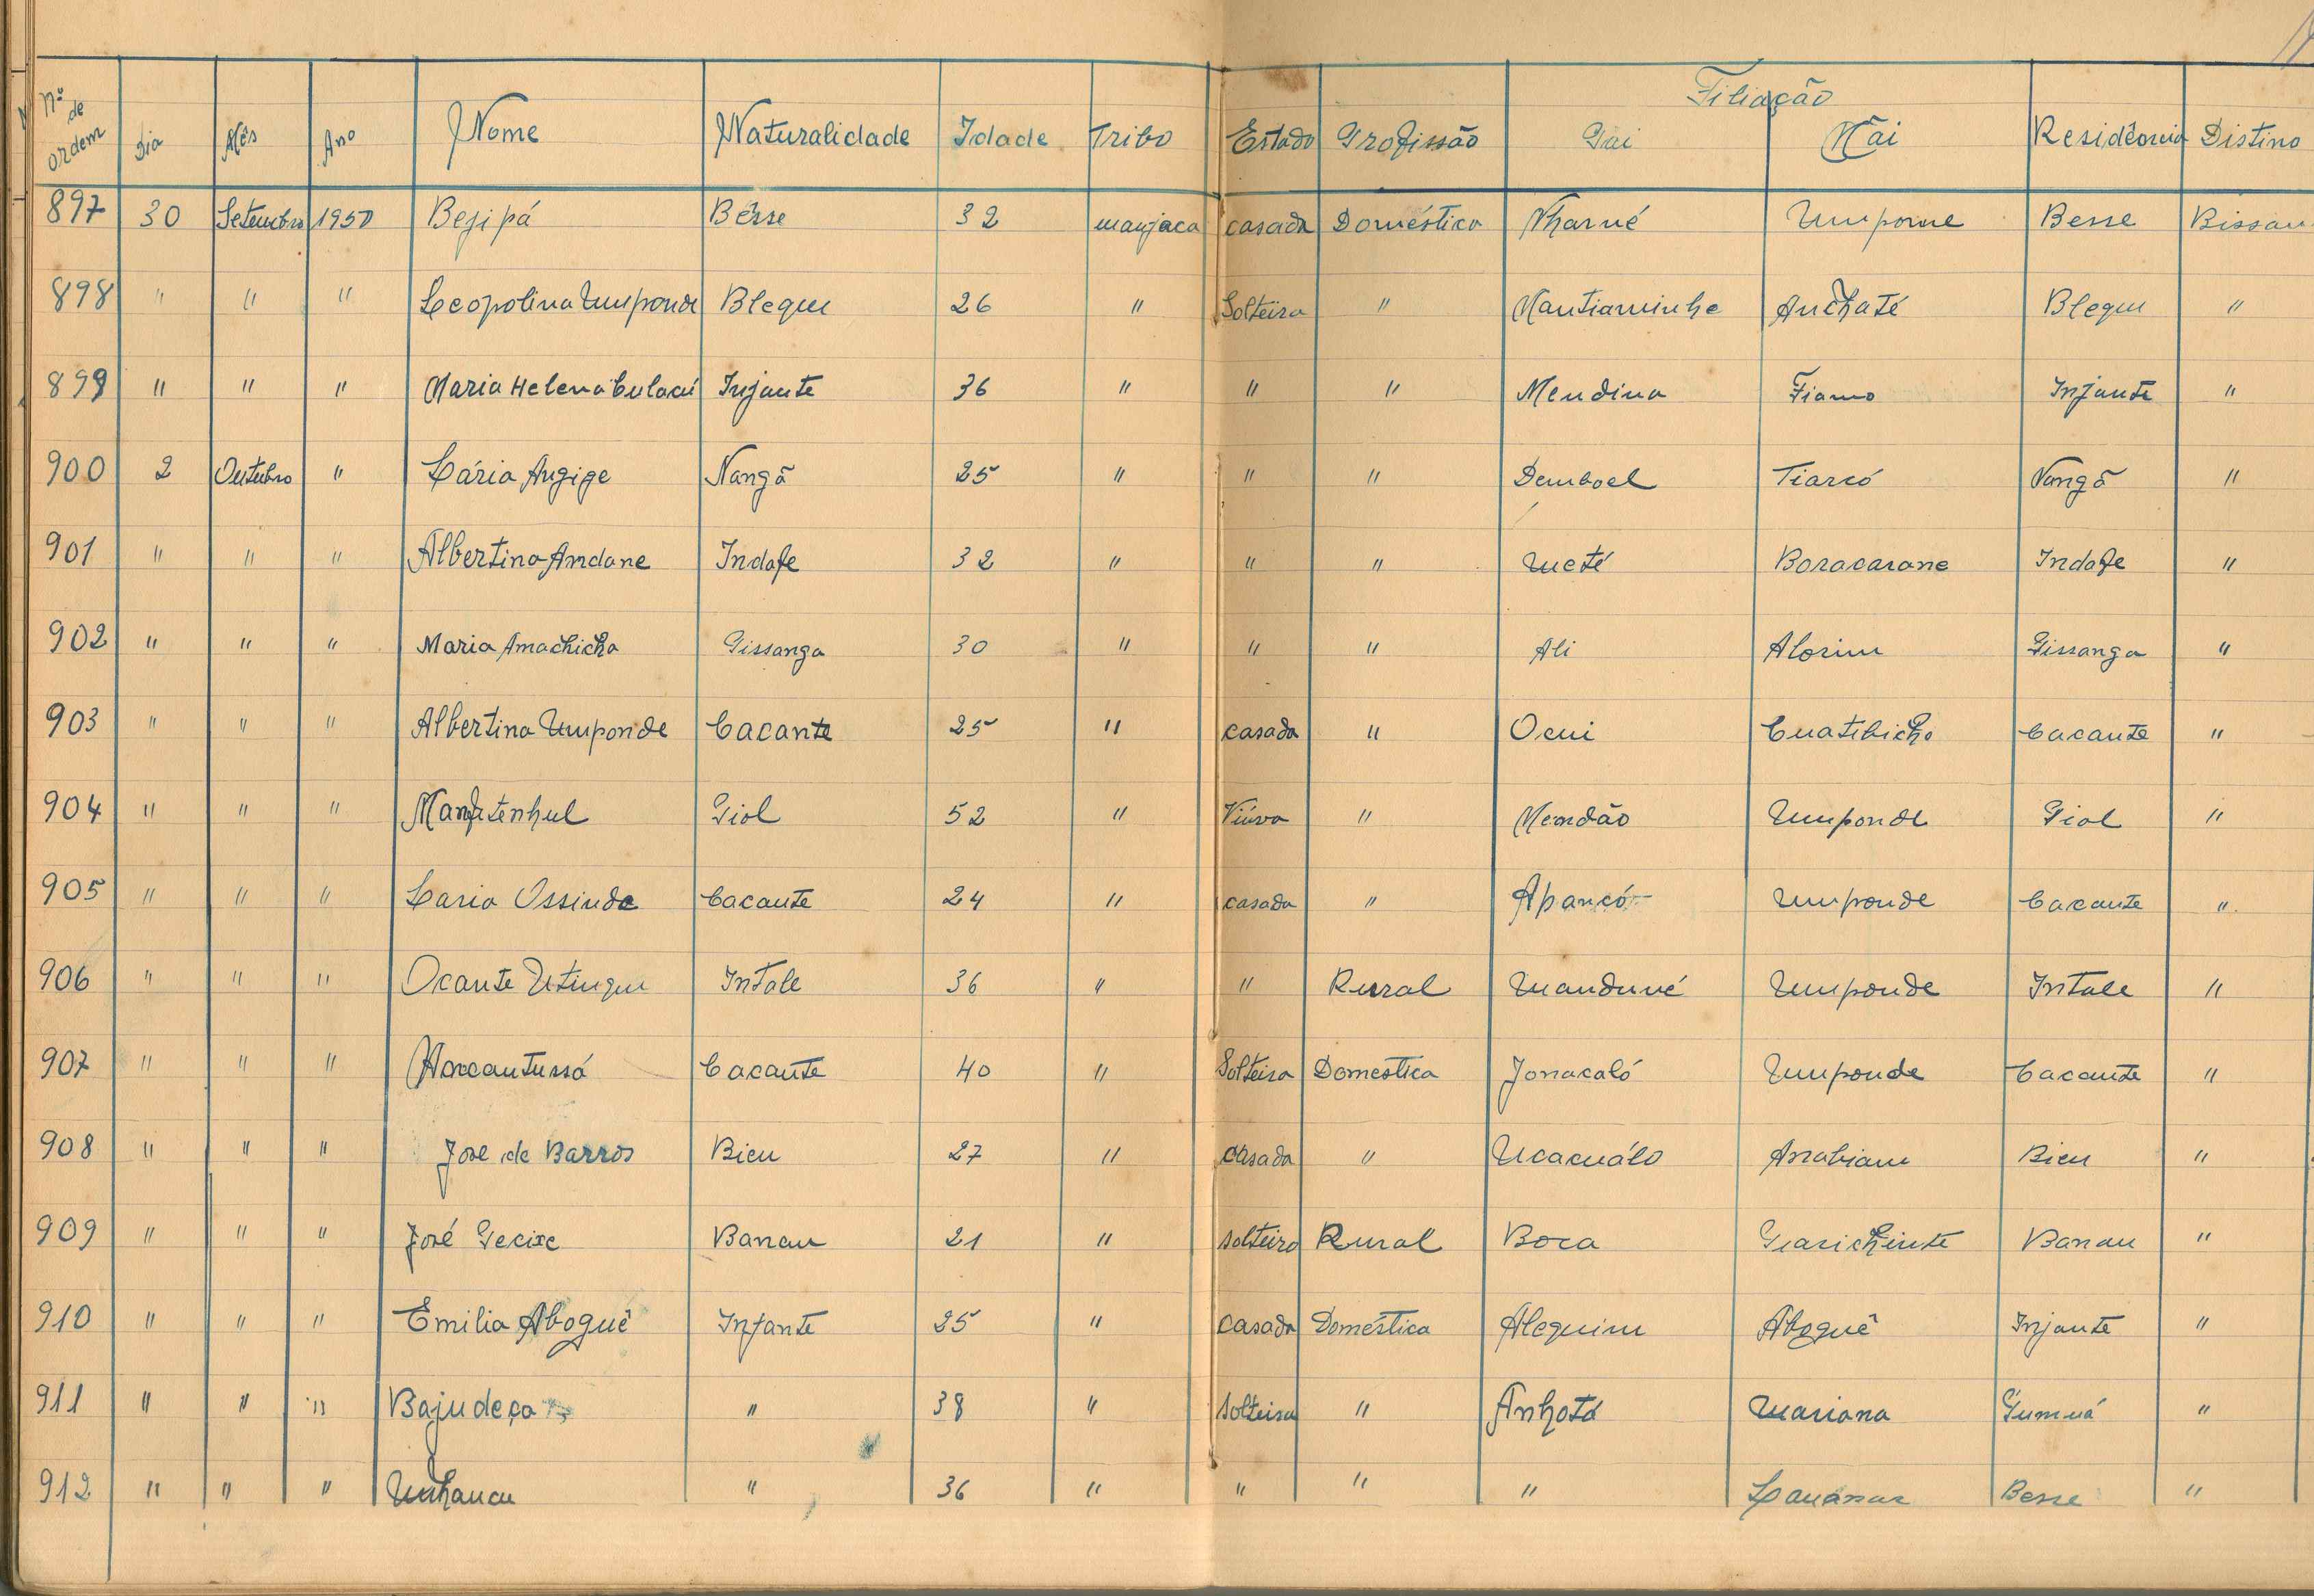 Filiação
Nº de ordem Dia Mês Ano Nome Naturalidade Idade Tribo Estado Profissão Pai Mãi Residência Distino
897 30 Setembro 1950 Besipá Bésse 32 manjaca casada Doméstica Nharné Umpome Besse Bissau
898 " " " Leopolina Umponde Blequu 26 " Solteira " Nantiaminhe Anchaté Blequu "
899 " " " Maria Helena Culacú Injante 36 " " " Mendina Fiamo Injante "
900 2 Outubro " Cária Angige Nangã 25 " " " Demboel Tiarcó Nangã "
901 " " " Albertina Andane Indafe 32 " " " Ucté Boracarane Indafe "
902 " " " Maria Amachicha Pissanga 30 " " " Ali Alorim Pissanga "
903 " " " Albertina Umponde Cacante 25 " casada " Ocui Cuatebicho Cacante "
904 " " " Manfatenhul Piol 52 " Viúva " Mendão Umponde Piol "
905 " " " Caria Ossinda Cacante 24 " casada " Apancó Umponde Cacante "
906 " " " Ocante Utinque Intale 36 " " Rural Manduné Umponde Intale "
907 " " " Cacante 40 " Solteira Domestica Jonacaló Umponde Cacante "
908 " " " José de Barros Bicu 27 " casada " Ucacuálo Anabiam Bicu "
909 " " " José Pecixe Banau 21 " solteiro Rural Boca Banau "
910 " " " Emilia Aboguê Injante 25 " casada Doméstica Alequim Aboguê Injante "
911 " " " Bajudeça " 38 " solteira " Anhotá Mariana Pumuá "
912 " " " " 36 " " " " Besse "